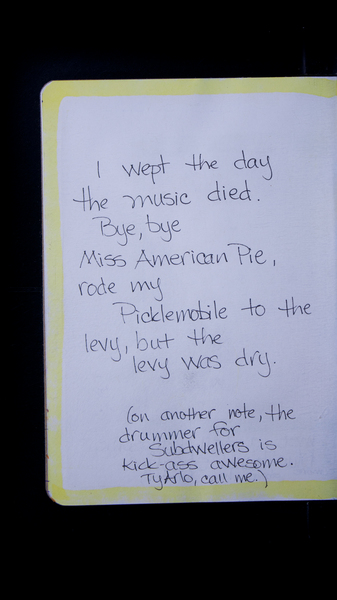 I wept the day
the music died.
Bye, bye
Miss American Pie,
rode my
Picklemobile to the
levy, but the
levy was dry.
(on another note, the
drummer for
Subdwellers is
kick-ass awesome.
TyArlo, call me.)